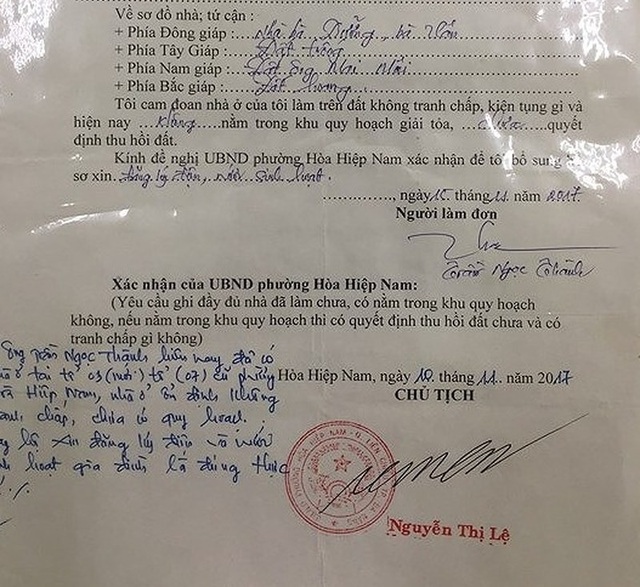 Về sơ đồ nhà; tứ cận :
+ Phía Đông giáp : Nhà bà Dưỡng, bà Vấn
+ Phía Tây Giáp : Đất trống
+ Phía Nam giáp : Đất ông Mai
+ Phía Bắc giáp : Đất hoang
Tôi cam đoan nhà ở của tôi làm trên đất không tranh chấp, kiện tụng gì và
hiện nay không nằm trong khu quy hoạch giải tỏa, chưa quyết
định thu hồi đất.
Kính đề nghị UBND phường Hòa Hiệp Nam xác nhận để tôi bổ sung
sơ xin đăng ký điện, nước sinh hoạt.
, ngày 15 tháng 11 năm 2017.
Người làm đơn
Trần Ngọc Thành
Xác nhận của UBND phường Hòa Hiệp Nam:
(Yêu cầu ghi đầy đủ nhà đã làm chưa, có nằm trong khu quy hoạch
không, nếu nằm trong khu quy hoạch thì có quyết định thu hồi đất chưa và có
tranh chấp gì không)
Ông Trần Ngọc Thành hiện nay đã có
ở tại tổ 03 (mới) tổ (07) cũ phường
Hiệp Nam, nhà ở ổn định không
chấp, chưa có quy hoạch.
đăng ký điện và nước
hoạt gia đình là đúng thực
Hòa Hiệp Nam, ngày 10 tháng 11 năm 2017
CHỦ TỊCH
Nguyễn Thị Lệ